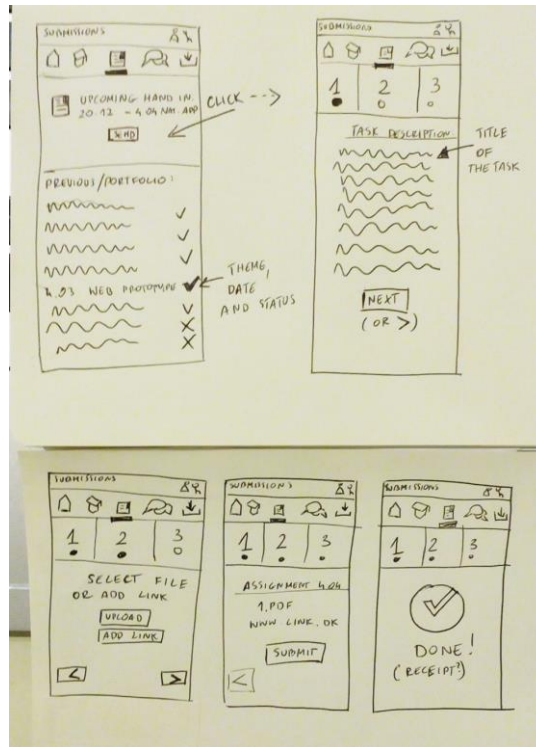 SUBMISSIONS
UPCOMING HAND IN.
20.12 - 4.04 NAT. APP
SEND
CLICK -->
PREVIOUS/PORTFOLIO:
4.03 WEB PROTOTYPE
THEME,
DATE
AND STATUS
SUBMISSIONS
1 2 3
TASK DESCRIPTION
TITLE
OF
THE TASK
NEXT
(OR >)
SUBMISSIONS
1 2 3
SELECT FILE
OR ADD LINK
UPLOAD
ADD LINK
< >
SUBMISSIONS
1 2 3
ASSIGNMENT 4.04
1.PDF
WWW LINK.DK
SUBMIT
<
SUBMISSIONS
1 2 3
DONE!
(RECEIPT?)